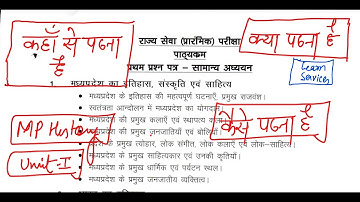 कहाँ से पढना है
राज्य सेवा (प्रारंभिक) परीक्षा
पाठ्यक्रम
प्रथम प्रश्न पत्र – सामान्य अध्ययन
क्या पढना है
Learn Services
1. मध्यप्रदेश का इतिहास, संस्कृति एवं साहित्य
मध्यप्रदेश के इतिहास की महत्वपूर्ण घटनाएँ, प्रमुख राजवंश।
स्वतंत्रता आन्दोलन में मध्यप्रदेश का योगदान
की प्रमुख कलाएँ एवं स्थापत्य कला
की प्रमुख जनजातियाँ एवं बोलियाँ
के प्रमुख त्योहार, लोक संगीत, लोक कलाएँ एवं लोक-साहित्य।
मध्यप्रदेश के प्रमुख साहित्यकार एवं उनकी कृतियाँ।
मध्यप्रदेश के प्रमुख धार्मिक एवं पर्यटन स्थल।
मध्यप्रदेश के प्रमुख जनजातीय व्यक्तित्व।
कैसे पढना है
MP History
Unit-I